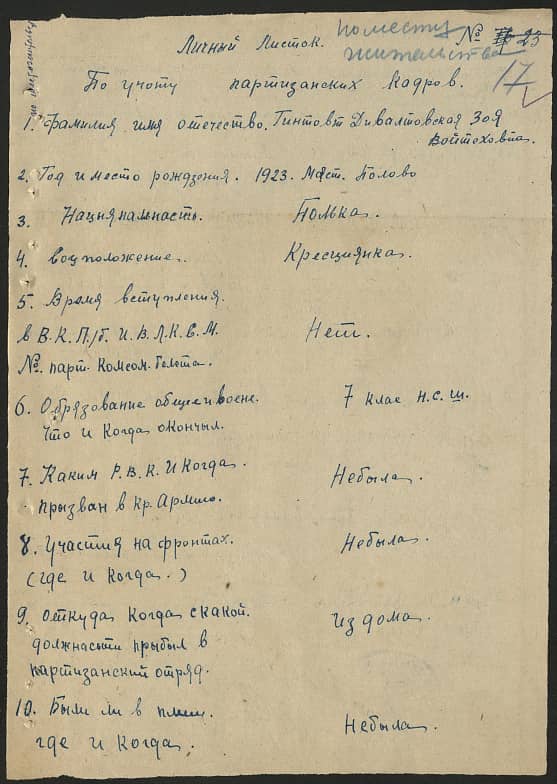 Личный Листок. по месту № 23
жительства
17
По учоту партизанских Кадров.
1. Фамилия имя отечество. Гинтовт Дивалтовская Зоя
Войтеховна.
2. Год и место рождзения. 1923. Мест. Полово
3. Нацияналность. Полька.
4. Соцположение. Кресциянка.
5. Время вступления
в В.К.П./б. И.В.Л.К.С.М. Нет.
№ парт. Комсом. билета.
6. Обрязование общее и воен. 7 клас н.с.ш.
Что и Когда окончил.
7. Каким Р.В.К. И Когда. Небыла.
призван в Кр. Армию.
8. Участия на фронтах. Небыла.
(где и Когда.)
9. Откуда Когда с какой. Из дома.
должнасти прыбыл в
партизанский отряд.
10. Были ли в плену. Небыла.
где и Когда.